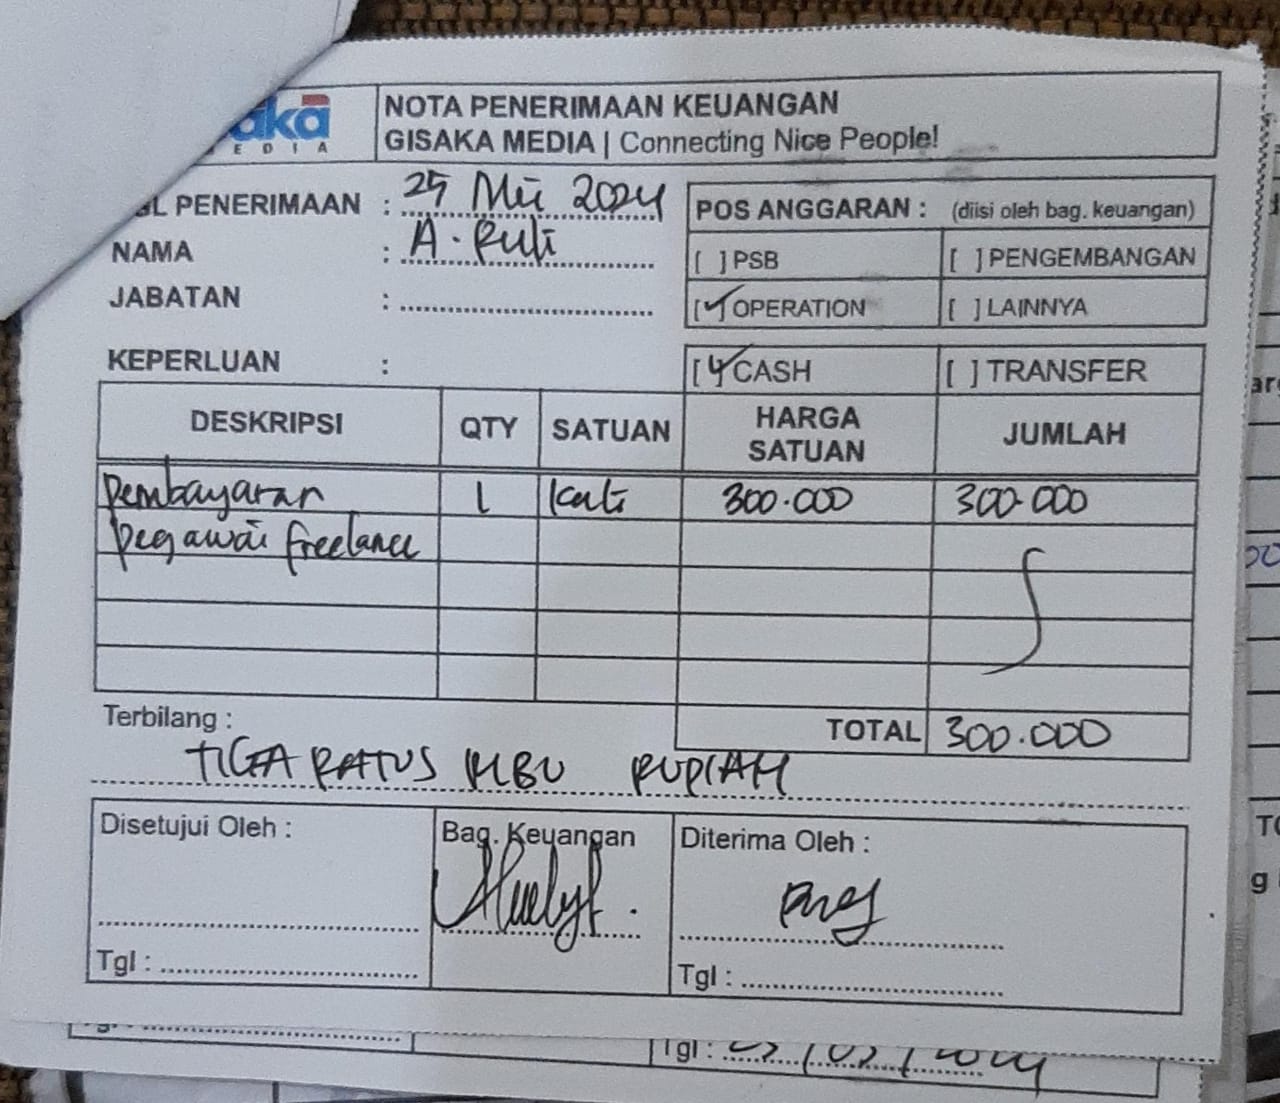 aka
EDIA
NOTA PENERIMAAN KEUANGAN
GISAKA MEDIA | Connecting Nice People!
GL PENERIMAAN : 25 Mei 2024
NAMA : A. Ruli
JABATAN :
POS ANGGARAN : (diisi oleh bag. keuangan)
[ ] PSB [ ] PENGEMBANGAN
[✓] OPERATION [ ] LAINNYA
KEPERLUAN : [✓] CASH [ ] TRANSFER
DESKRIPSI QTY SATUAN HARGA SATUAN JUMLAH
Pembayaran 1 kali 300.000 300.000
pegawai freelance
Terbilang : TOTAL 300.000
TIGA RATUS RIBU RUPIAH
Disetujui Oleh : Bag. Keuangan Diterima Oleh :
Tgl : Tgl :
Tgl :